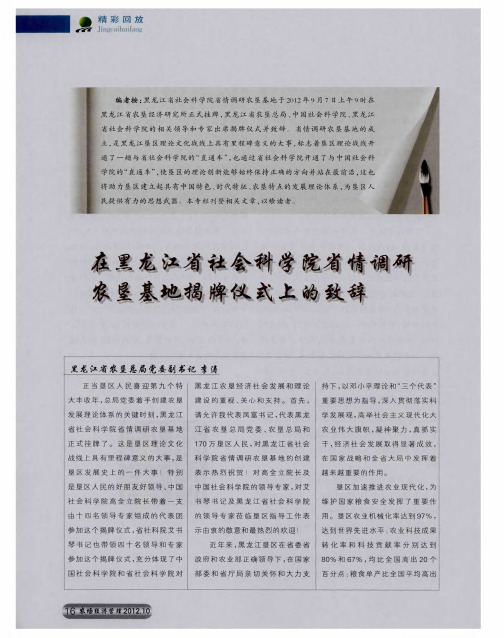 精彩回放
Jingcaihuifang
编者按：黑龙江省社会科学院省情调研农垦基地于2012年9月7日上午9时在
黑龙江省农垦经济研究所正式挂牌，黑龙江省农垦总局、中国社会科学院、黑龙江
省社会科学院的相关领导和专家出席揭牌仪式并致辞。省情调研农垦基地的成
立，是黑龙江垦区理论文化战线上具有里程碑意义的大事，标志着垦区理论战线开
通了一趟与省社会科学院的“直通车”，也通过省社会科学院开通了与中国社会科
学院的“直通车”，使垦区的理论创新能够始终保持正确的方向并站在最前沿，这也
将助力垦区建立起具有中国特色、时代特征、农垦特点的发展理论体系，为垦区人
民提供有力的思想武器。本专栏刊登相关文章，以飨读者。
在黑龙江省社会科学院省情调研
农垦基地揭牌仪式上的致辞
黑龙江省农垦总局党委副书记 李涛
正当垦区人民喜迎第九个特
大丰收年，总局党委着手创建农垦
发展理论体系的关键时刻，黑龙江
省社会科学院省情调研农垦基地
正式挂牌了。这是垦区理论文化
战线上具有里程碑意义的大事，是
垦区发展史上的一件大事！特别
是垦区人民的好朋友好领导，中国
社会科学院高全立院长带着一支
由十四名领导专家组成的代表团
参加这个揭牌仪式，省社科院艾书
琴书记也带领四十名领导和专家
参加这个揭牌仪式，充分体现了中
国社会科学院和省社会科学院对
黑龙江农垦经济社会发展和理论
建设的重视、关心和支持。首先，
请允许我代表凤富书记，代表黑龙
江省农垦总局党委、农垦总局和
170万垦区人民，对黑龙江省社会
科学院省情调研农垦基地的创建
表示热烈祝贺！对高全立院长及
中国社会科学院的领导专家，对艾
书琴书记及黑龙江省社会科学院
的领导专家莅临垦区指导工作表
示由衷的敬意和最热烈的欢迎！
近年来，黑龙江垦区在省委省
政府和农业部正确领导下，在国家
部委和省厅局亲切关怀和大力支
持下，以邓小平理论和“三个代表”
重要思想为指导，深入贯彻落实科
学发展观，高举社会主义现代化大
农业伟大旗帜，凝神聚力，真抓实
干，经济社会发展取得显著成效，
在国家战略和全省大局中发挥着
越来越重要的作用。
垦区加速推进农业现代化，为
维护国家粮食安全发挥了重要作
用。垦区农业机械化率达到97%，
达到世界先进水平；农业科技成果
转化率和科技贡献率分别达到
80%和67%，均比全国高出20个
百分点；粮食单产比全国平均高出
16 农场经济管理 2012.10